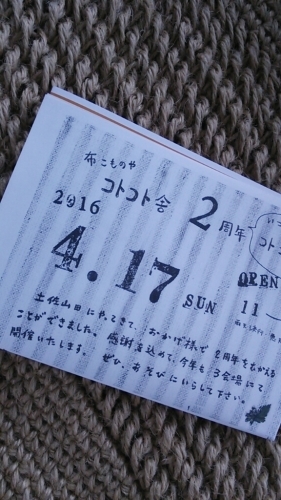 布こものや
コトコト舎 2周年
いつ
コト
2016
4.17 SUN
OPEN
11
土佐山田にやってきて、おかげ様で2周年をむかえる
ことができました。感謝を込めて、今年も3会場にて
開催いたします。ぜひ、あそびにいらして下さい。